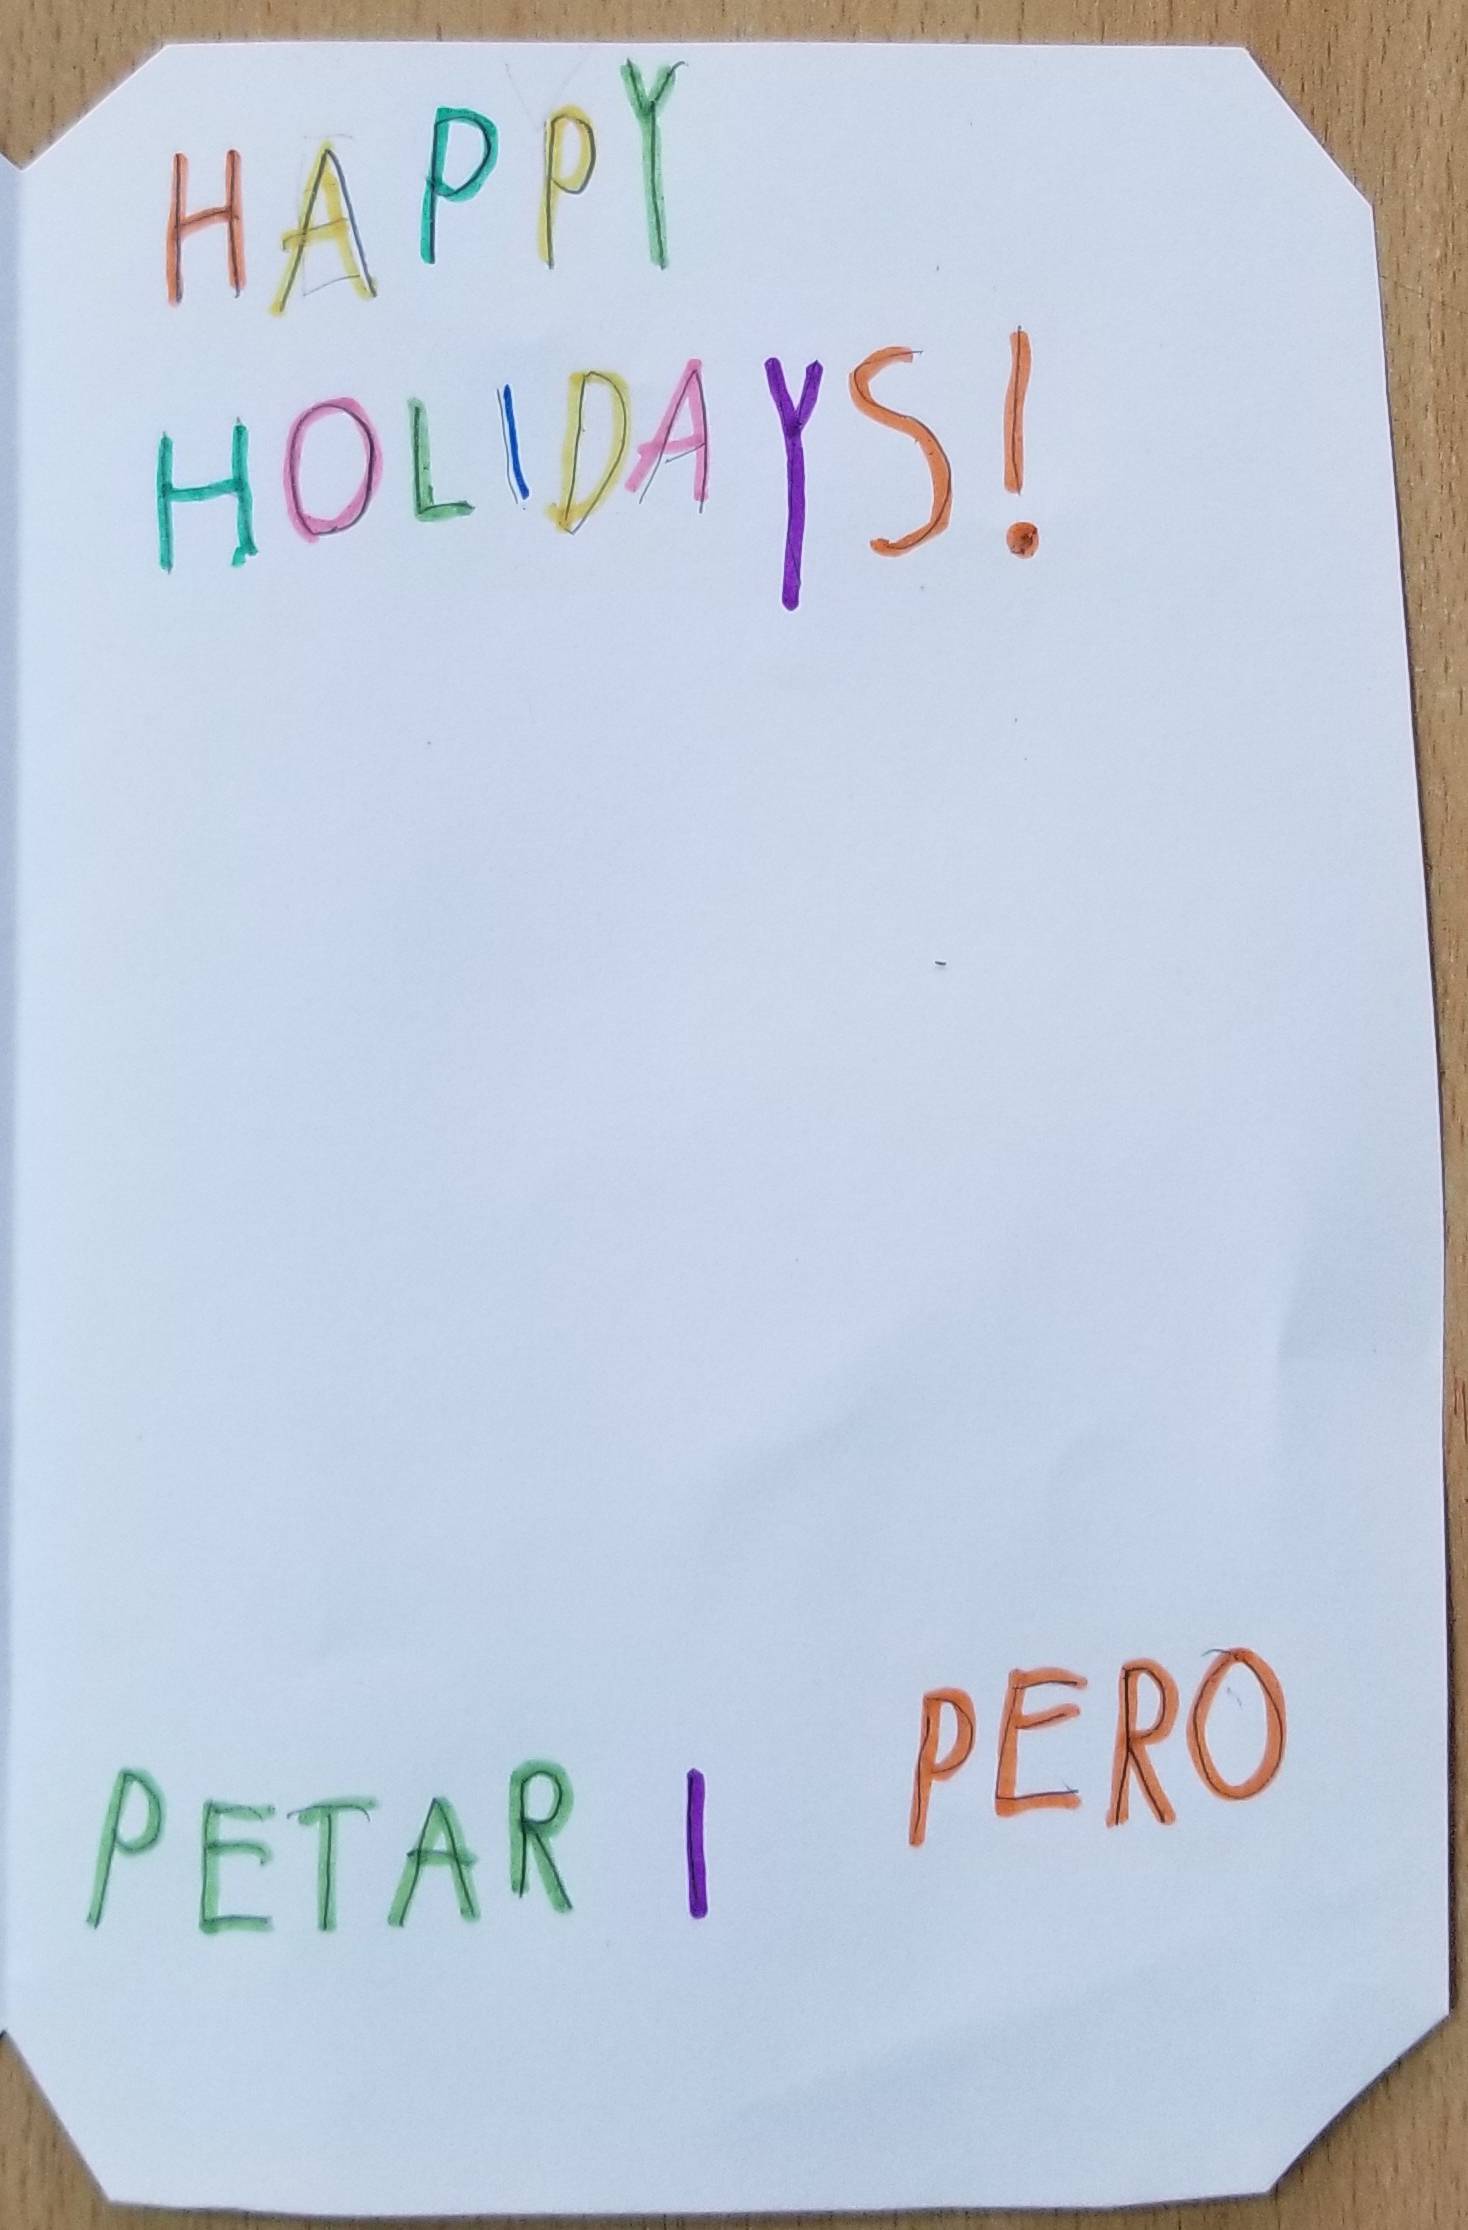 HAPPY
HOLIDAYS!
PETAR I PERO